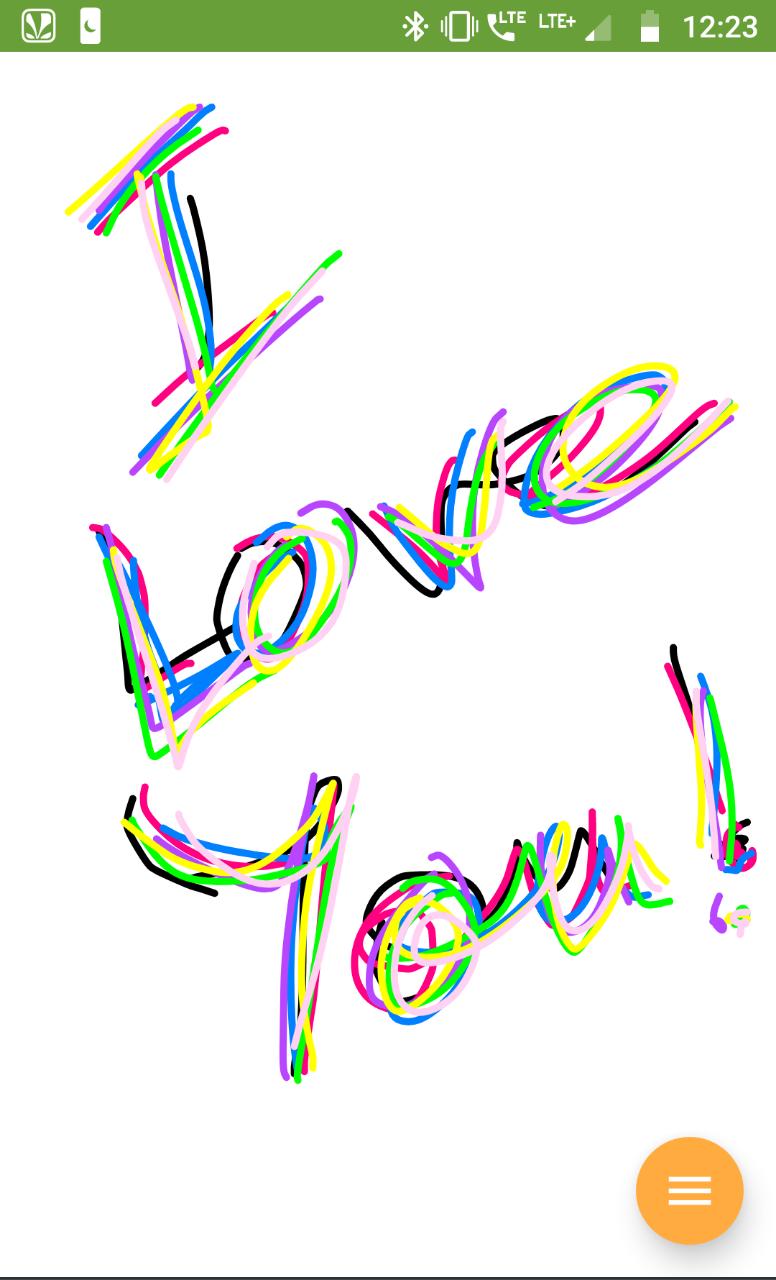 LTE LTE+ 12:23
I
Love
You!